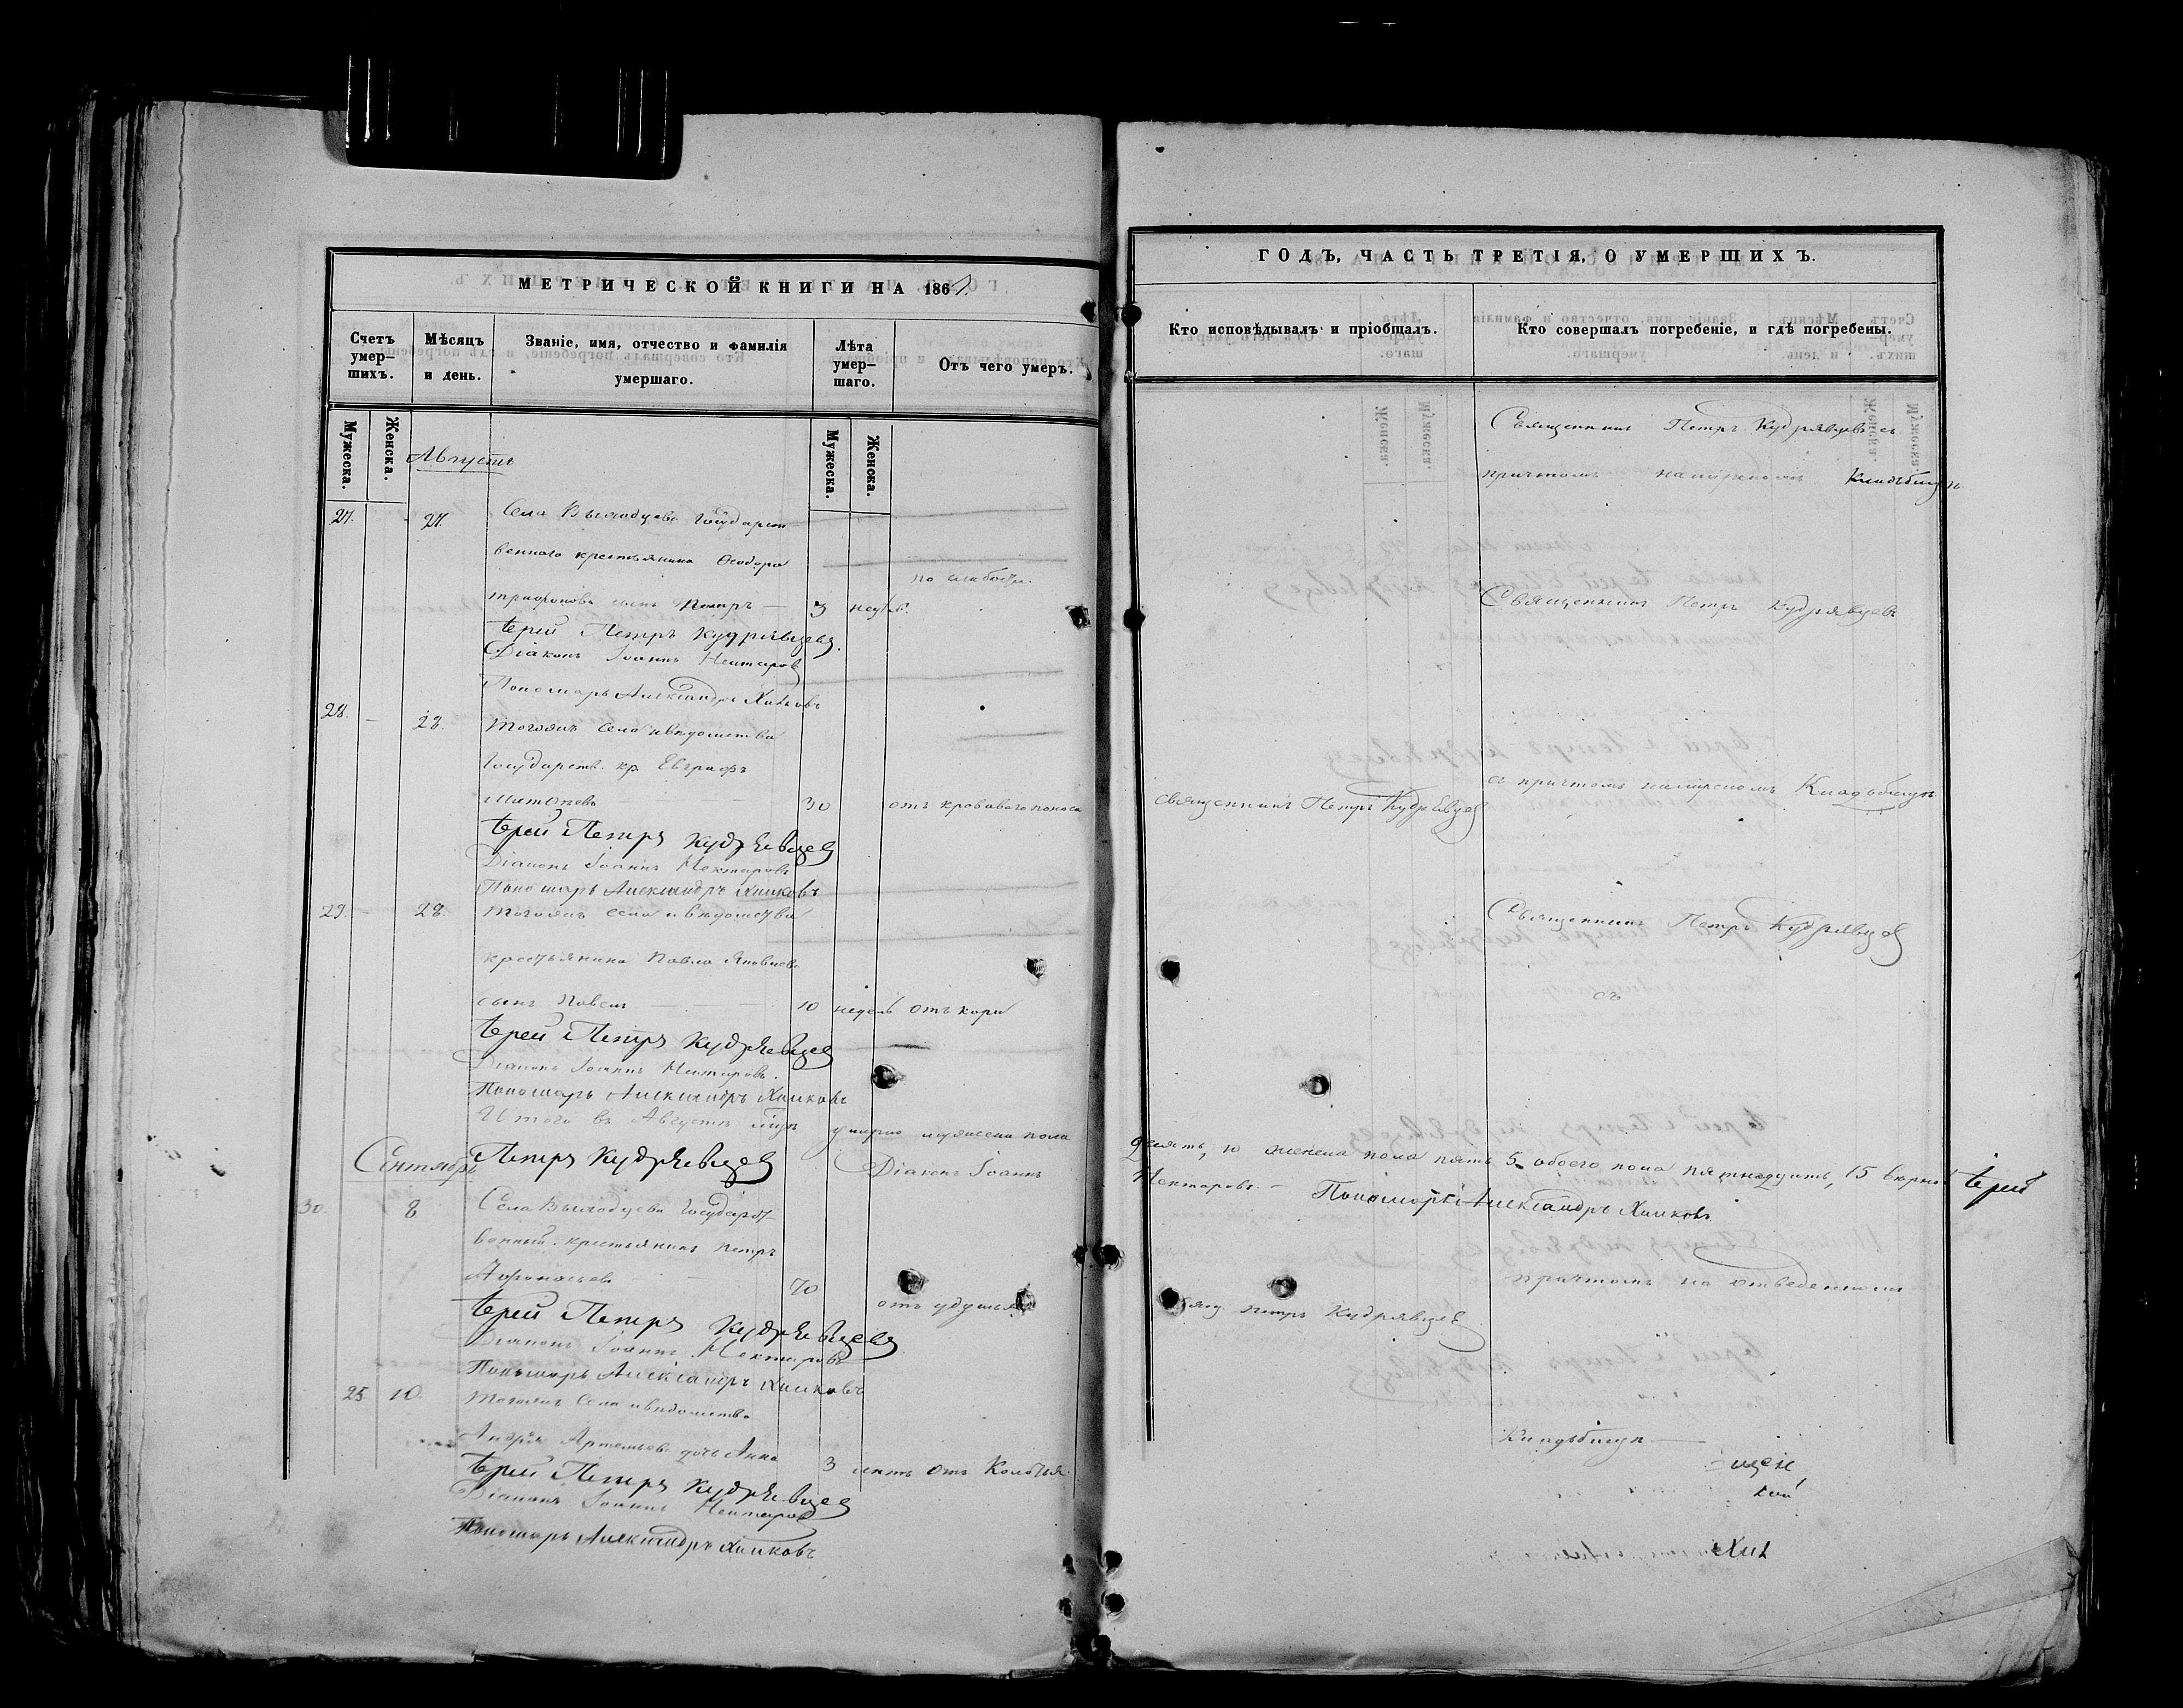 МЕТРИЧЕСКОЙ КНИГИ НА 1861.
Счетъ умер-шихъ.
Мѣсяцъ и день.
Званіе, имя, отчество и фамилія умершаго.
Лѣта умер-шаго.
Отъ чего умеръ.
Мужеска.
Женска.
Мужеска.
Женска.
Августъ
27. 27. Села Выходцева Государст
веннаго крестьянина Ѳеодора
сынъ Петръ — 3 недѣль. по слабости.
Іерей Петръ Кудрявцевъ.
Діаконъ Іоаннъ Нектаровъ
Пономарь Александръ Хилковъ
28. — 28. Тогожъ села и вѣдомства
Государств. кр. Евграфъ
30 отъ кроваваго поноса
Іерей Петръ Кудрявцевъ
Діаконъ Іоаннъ Нектаровъ
Пономарь Александръ Хилковъ
29. — 28. Тогожъ села и вѣдомства
крестьянина Павла Яковлева
сынъ Павелъ — 10 недель отъ кори
Іерей Петръ Кудрявцевъ
Діаконъ Іоаннъ Нектаровъ.
Пономарь Александръ Хилковъ
Итого въ Августѣ умерло мужеска пола
Петръ Кудрявцевъ Діаконъ Іоаннъ
Сентябрь
30. 8 Села Выходцева Государст
венный крестьянинъ Петръ
Афонасьевъ — 70 отъ удушья
Іерей Петръ Кудрявцевъ
Діаконъ Іоаннъ Нектаровъ
Пономарь Александръ Хилковъ
25 10. Тогожъ села и вѣдомства
Андрея Артемьева дочь Анна 3 лѣтъ отъ
Іерей Петръ Кудрявцевъ
Діаконъ Іоаннъ Нектаровъ
Пономарь Александръ Хилковъ
ГОДЪ, ЧАСТЬ ТРЕТІЯ, О УМЕРШИХЪ.
Кто исповѣдывалъ и пріобщалъ.
Кто совершалъ погребеніе, и гдѣ погребены.
Священникъ Петръ Кудрявцевъ съ
причтомъ на мірскомъ кладбищѣ
Священникъ Петръ Кудрявцевъ
съ причтомъ на мірскомъ Кладбищѣ
Священникъ Петръ Кудрявцевъ
Священникъ Петръ Кудрявцевъ
съ
10 женска пола пять 5 обоего пола пятнадцать, 15 вѣрно Іерей
Нектаровъ. — Пономарь Александръ Хилковъ
причтомъ на отведенномъ
Петръ Кудрявцевъ
Кладбищѣ